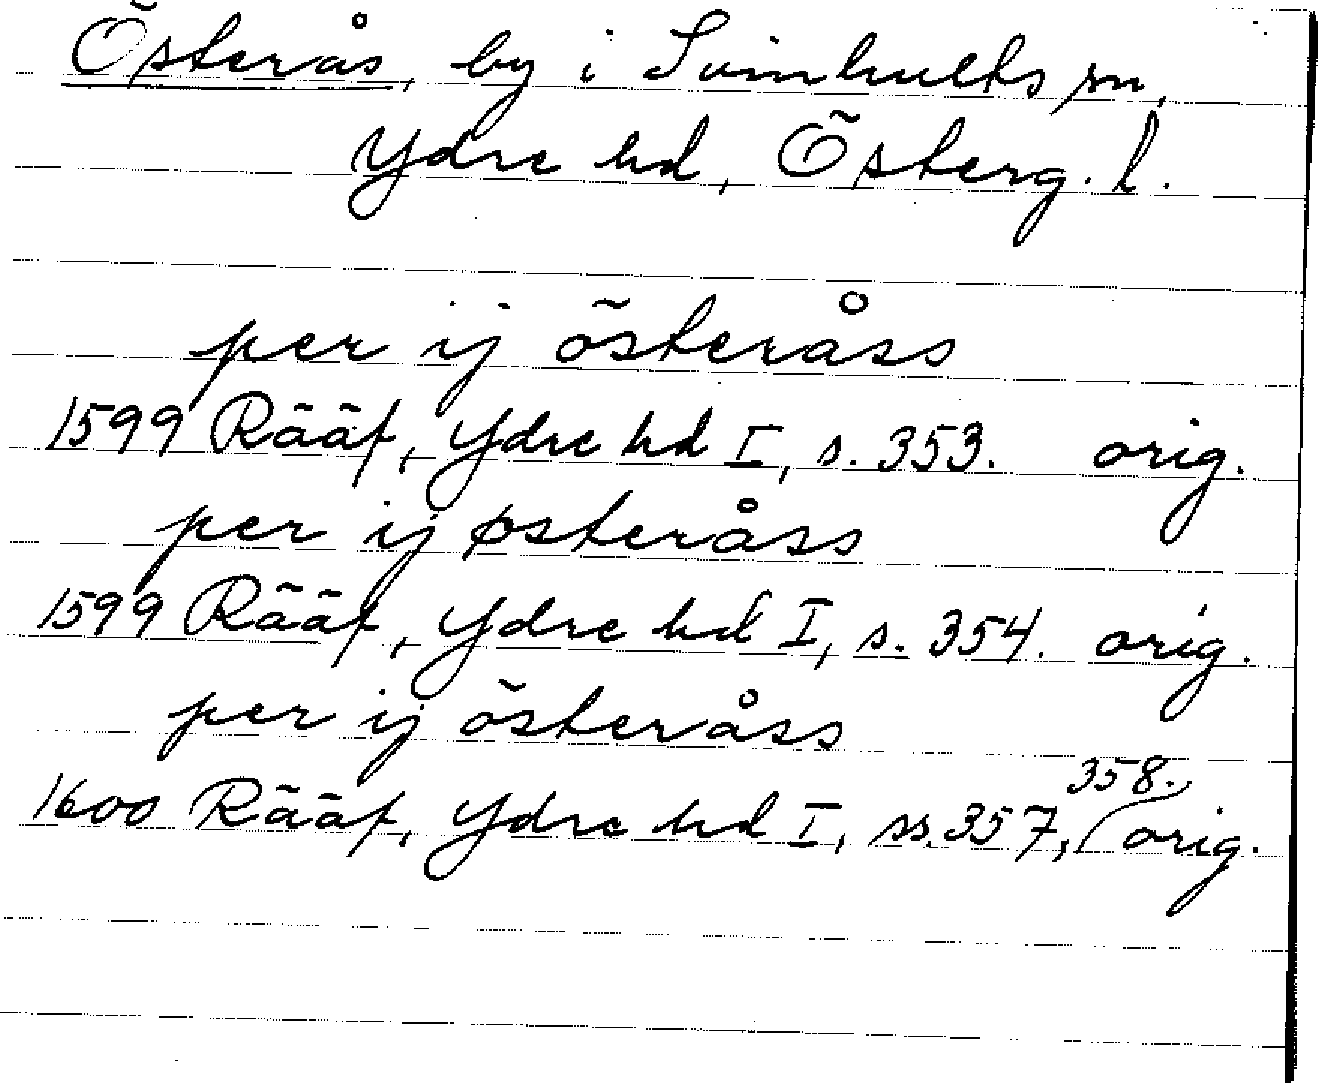 Österås, by i Svinhults sn,
Ydre hd, Österg. l.
per ij österåss
1599 Rääf, Ydre hd I, s. 353. orig.
per ij østeråss
1599 Rääf, Ydre hd I, s. 354. orig.
per ij österåss
1600 Rääf, Ydre hd I, ss. 357, 358. orig.